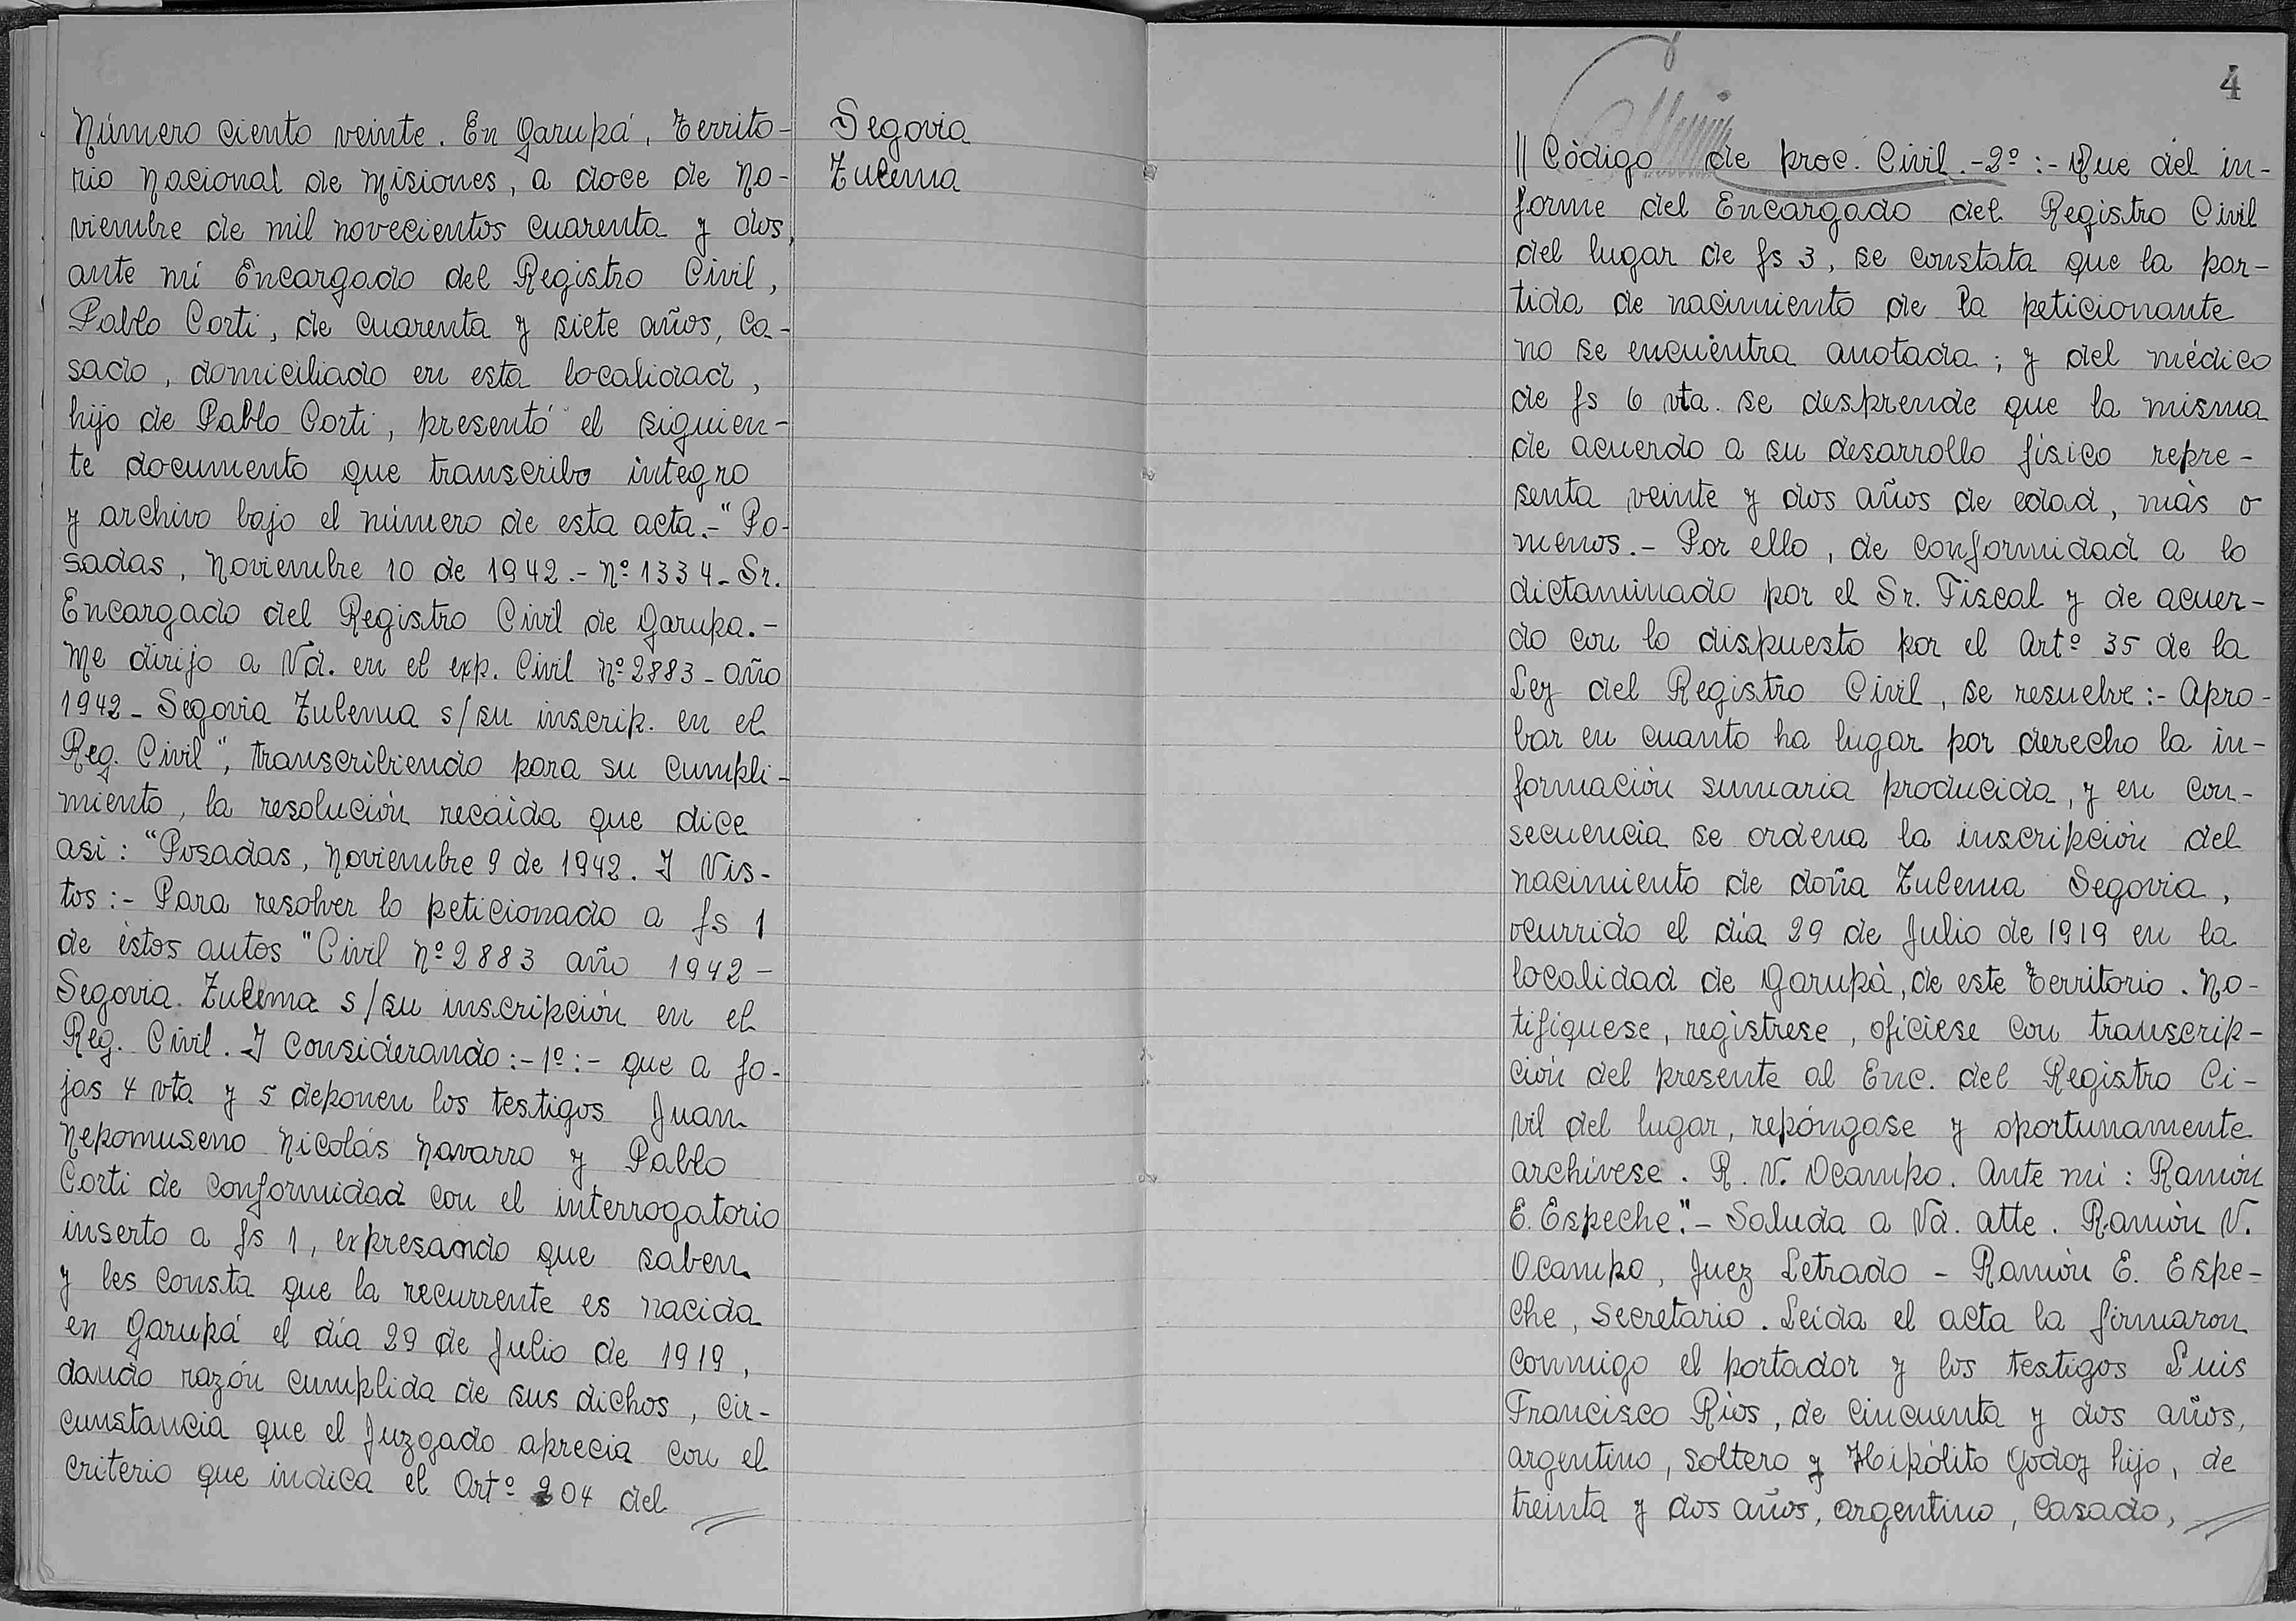 Número ciento veinte. En Garupá, Territo-
rio Nacional de Misiones, a doce de No-
viembre de mil novecientos cuarenta y dos,
ante mí Encargado del Registro Civil,
Pablo Corti, de cuarenta y siete años, ca-
sado, domiciliado en esta localidad,
hijo de Pablo Corti, presentó el siguien-
te documento que transcribo integro
y archivo bajo el número de esta acta.-"Po-
sadas, Noviembre 10 de 1942.- Nº 1334- Sr.
Encargado del Registro Civil de Garupa.-
Me dirijo a Vd. en el exp. Civil Nº 2883- año
1942- Segovia Zulema s/su inscrip. en el
Reg. Civil", transcribiendo para su cumpli-
miento, la resolución recaída que dice
asi: "Posadas, Noviembre 9 de 1942. Y Vis-
tos:- Para resolver lo peticionado a fs 1
de èstos autos "Civil Nº 2883 año 1942-
Segovia Zulema s/su inscripción en el
Reg. Civil. Y Considerando:-1º:- que a fo-
jas 4 vta y 5 deponen los testigos Juan
Nepomuseno Nicolás Navarro y Pablo
Corti de conformidad con el interrogatorio
inserto a fs 1, expresando que saben
y les consta que la recurrente es nacida
en Garupá el día 29 de Julio de 1919,
dando razón cumplida de sus dichos, cir-
cunstancia que el Juzgado aprecia con el
criterio que indica el Artº 204 del
Segovia
Zulema
4
|| Còdigo de proc. Civil.-2º:- Que del in-
forme del Encargado del Registro Civil
del lugar de fs 3, se constata que la par-
tida de nacimiento de la peticionante
no se encuentra anotada; y del médico
de fs 6 vta. se desprende que la misma
de acuerdo a su desarrollo físico repre-
senta veinte y dos años de edad, màs o
menos.- Por ello, de conformidad a lo
dictaminado por el Sr. Fiscal y de acuer-
do con lo dispuesto por el Artº 35 de la
Ley del Registro Civil, se resuelve:- Apro-
bar en cuanto ha lugar por derecho la in-
formaciòn sumaria producida, y en con-
secuencia se ordena la inscripciòn del
nacimiento de doña Zulema Segovia,
ocurrido el día 29 de Julio de 1919 en la
localidad de Garupà, de este Territorio. No-
tifiquese, regístrese, ofíciese con transcrip-
ción del presente al Enc. del Registro Ci-
vil del lugar, repóngase y oportunamente
archívese. R. V. Ocampo. Ante mi: Ramón
E. Espeche."- Saluda a Vd. atte. Ramòn V.
Ocampo, Juez Letrado - Ramòn E. Espe-
che, Secretario. Leída el acta la firmaron
conmigo el portador y los testigos Luis
Francisco Ríos, de cincuenta y dos años,
argentino, soltero y Hipólito Godoy hijo, de
treinta y dos años, argentino, casado,